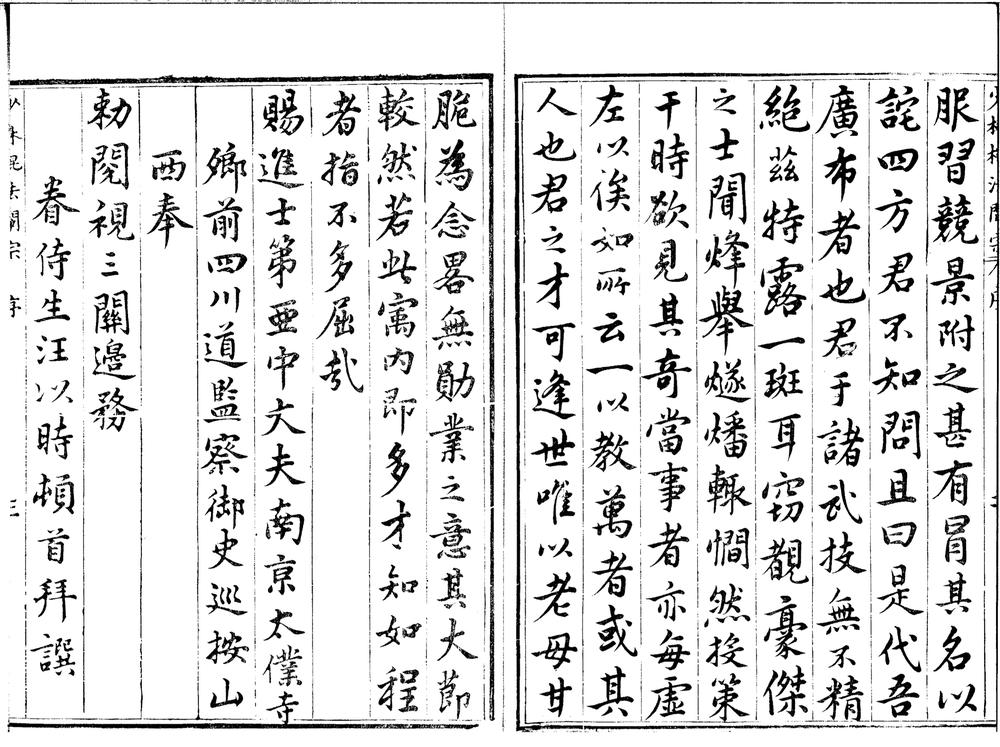 服習競景附之甚有冐其名以
詫四方君不知問且曰是代吾
廣布者也君于諸武技無不精
絕茲特露一斑耳窃觀豪傑
之士聞烽舉燧燔輙憪然投策
干時欲見其奇當事者亦每虛
左以俟如所云一以教萬者或其
人也君之才可逢世唯以老母甘
脆為念畧無勛業之意其大節
較然若此寓內即多才〻知如程
者指不多屈哉
賜進士第亞中大夫南京太僕寺
卿前四川道監察御史巡按山
西奉
勅閱視三關邊務
眷侍生汪以時頓首拜譔
少林棍法闡宗 序 三